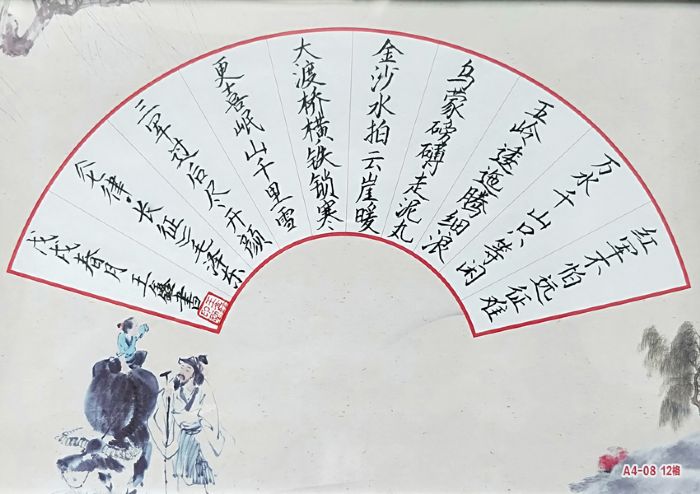 红军不怕远征难
万水千山只等闲
五岭逶迤腾细浪
乌蒙磅礴走泥丸
金沙水拍云崖暖
大渡桥横铁锁寒
更喜岷山千里雪
三军过后尽开颜
《七律·长征》毛泽东
戊戌春月王鑫書
A4-08 12格